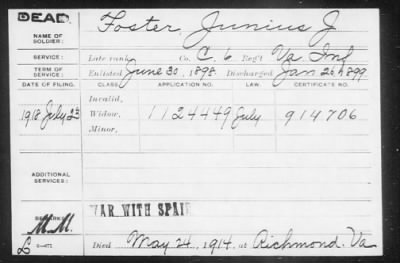 DEAD.
NAME OF SOLDIER: Foster, Junius J
SERVICE: Late rank Co. C. 6 Reg't Va. Inf
TERM OF SERVICE: Enlisted June 30, 1898. Discharged Jan 26, 1899
DATE OF FILING. CLASS. APPLICATION NO. LAW. CERTIFICATE NO.
Invalid,
1918 July 23 Widow, 1124449 July 914706
Minor,
ADDITIONAL SERVICES:
WAR WITH SPAIN
REMARKS:
M.M.
Died May 24, 1914, at Richmond. Va